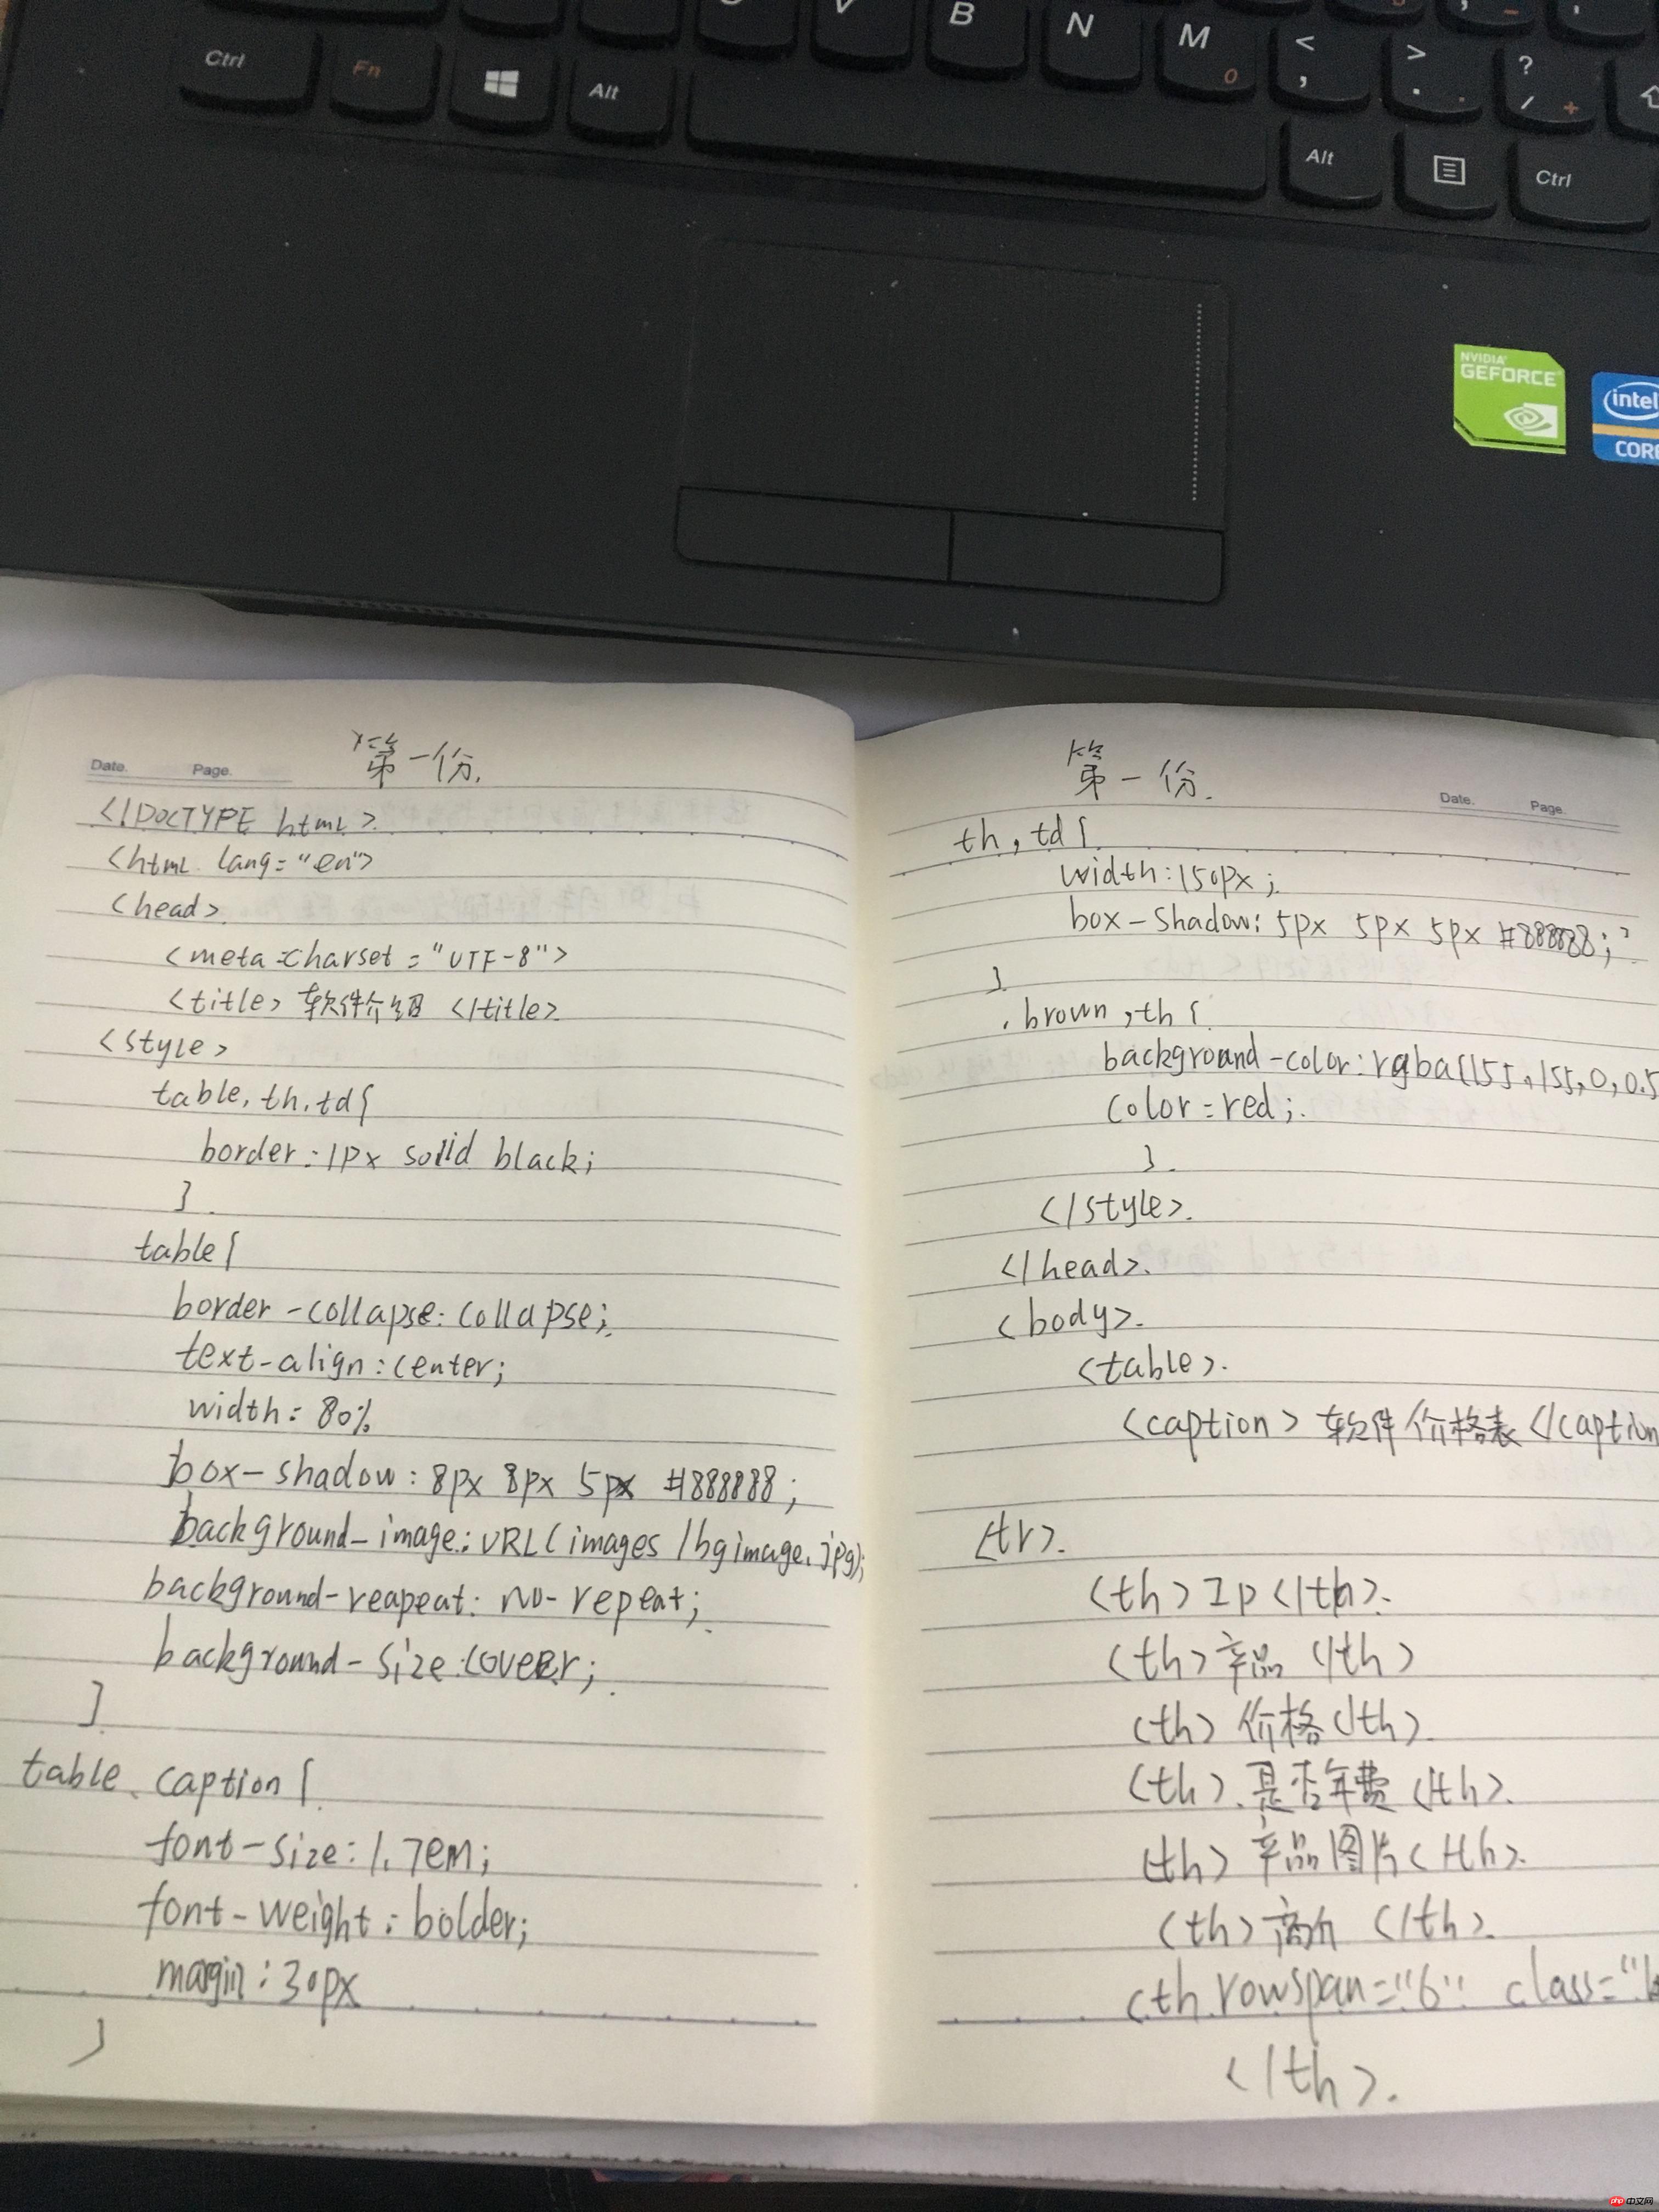 V B N M O < , > . ? / +
Ctrl Fn Alt Alt Ctrl
NVIDIA
GEFORCE
intel
CORE
第一份.
Date. Page.
<!DOCTYPE html>
<html lang="en">
<head>
<meta charset="UTF-8">
<title>软件介绍</title>
<style>
table, th, td{
border:1px solid black;
}
table{
border-collapse: collapse;
text-align:center;
width: 80%
box-shadow: 8px 8px 5px #888888;
background-image: URL(images/bgimage.jpg);
background-reapeat: no-repeat;
background-size:cover;
}
table caption{
font-size:1.7em;
font-weight:bolder;
margin:30px
}
第一份.
Date. Page.
th, td{
width:150px;
box-shadow: 5px 5px 5px #888888;
}
.brown,th{
background-color:rgba(155,155,0,0.5
color=red;
}
</style>
</head>
<body>
<table>
<caption>软件价格表</caption
<tr>
<th>Ip</th>
<th>产品</th>
<th>价格</th>
<th>是否年费</th>
<th>产品图片</th>
<th></th>
<th rowspan="6" class="b
</th>
php 中文网